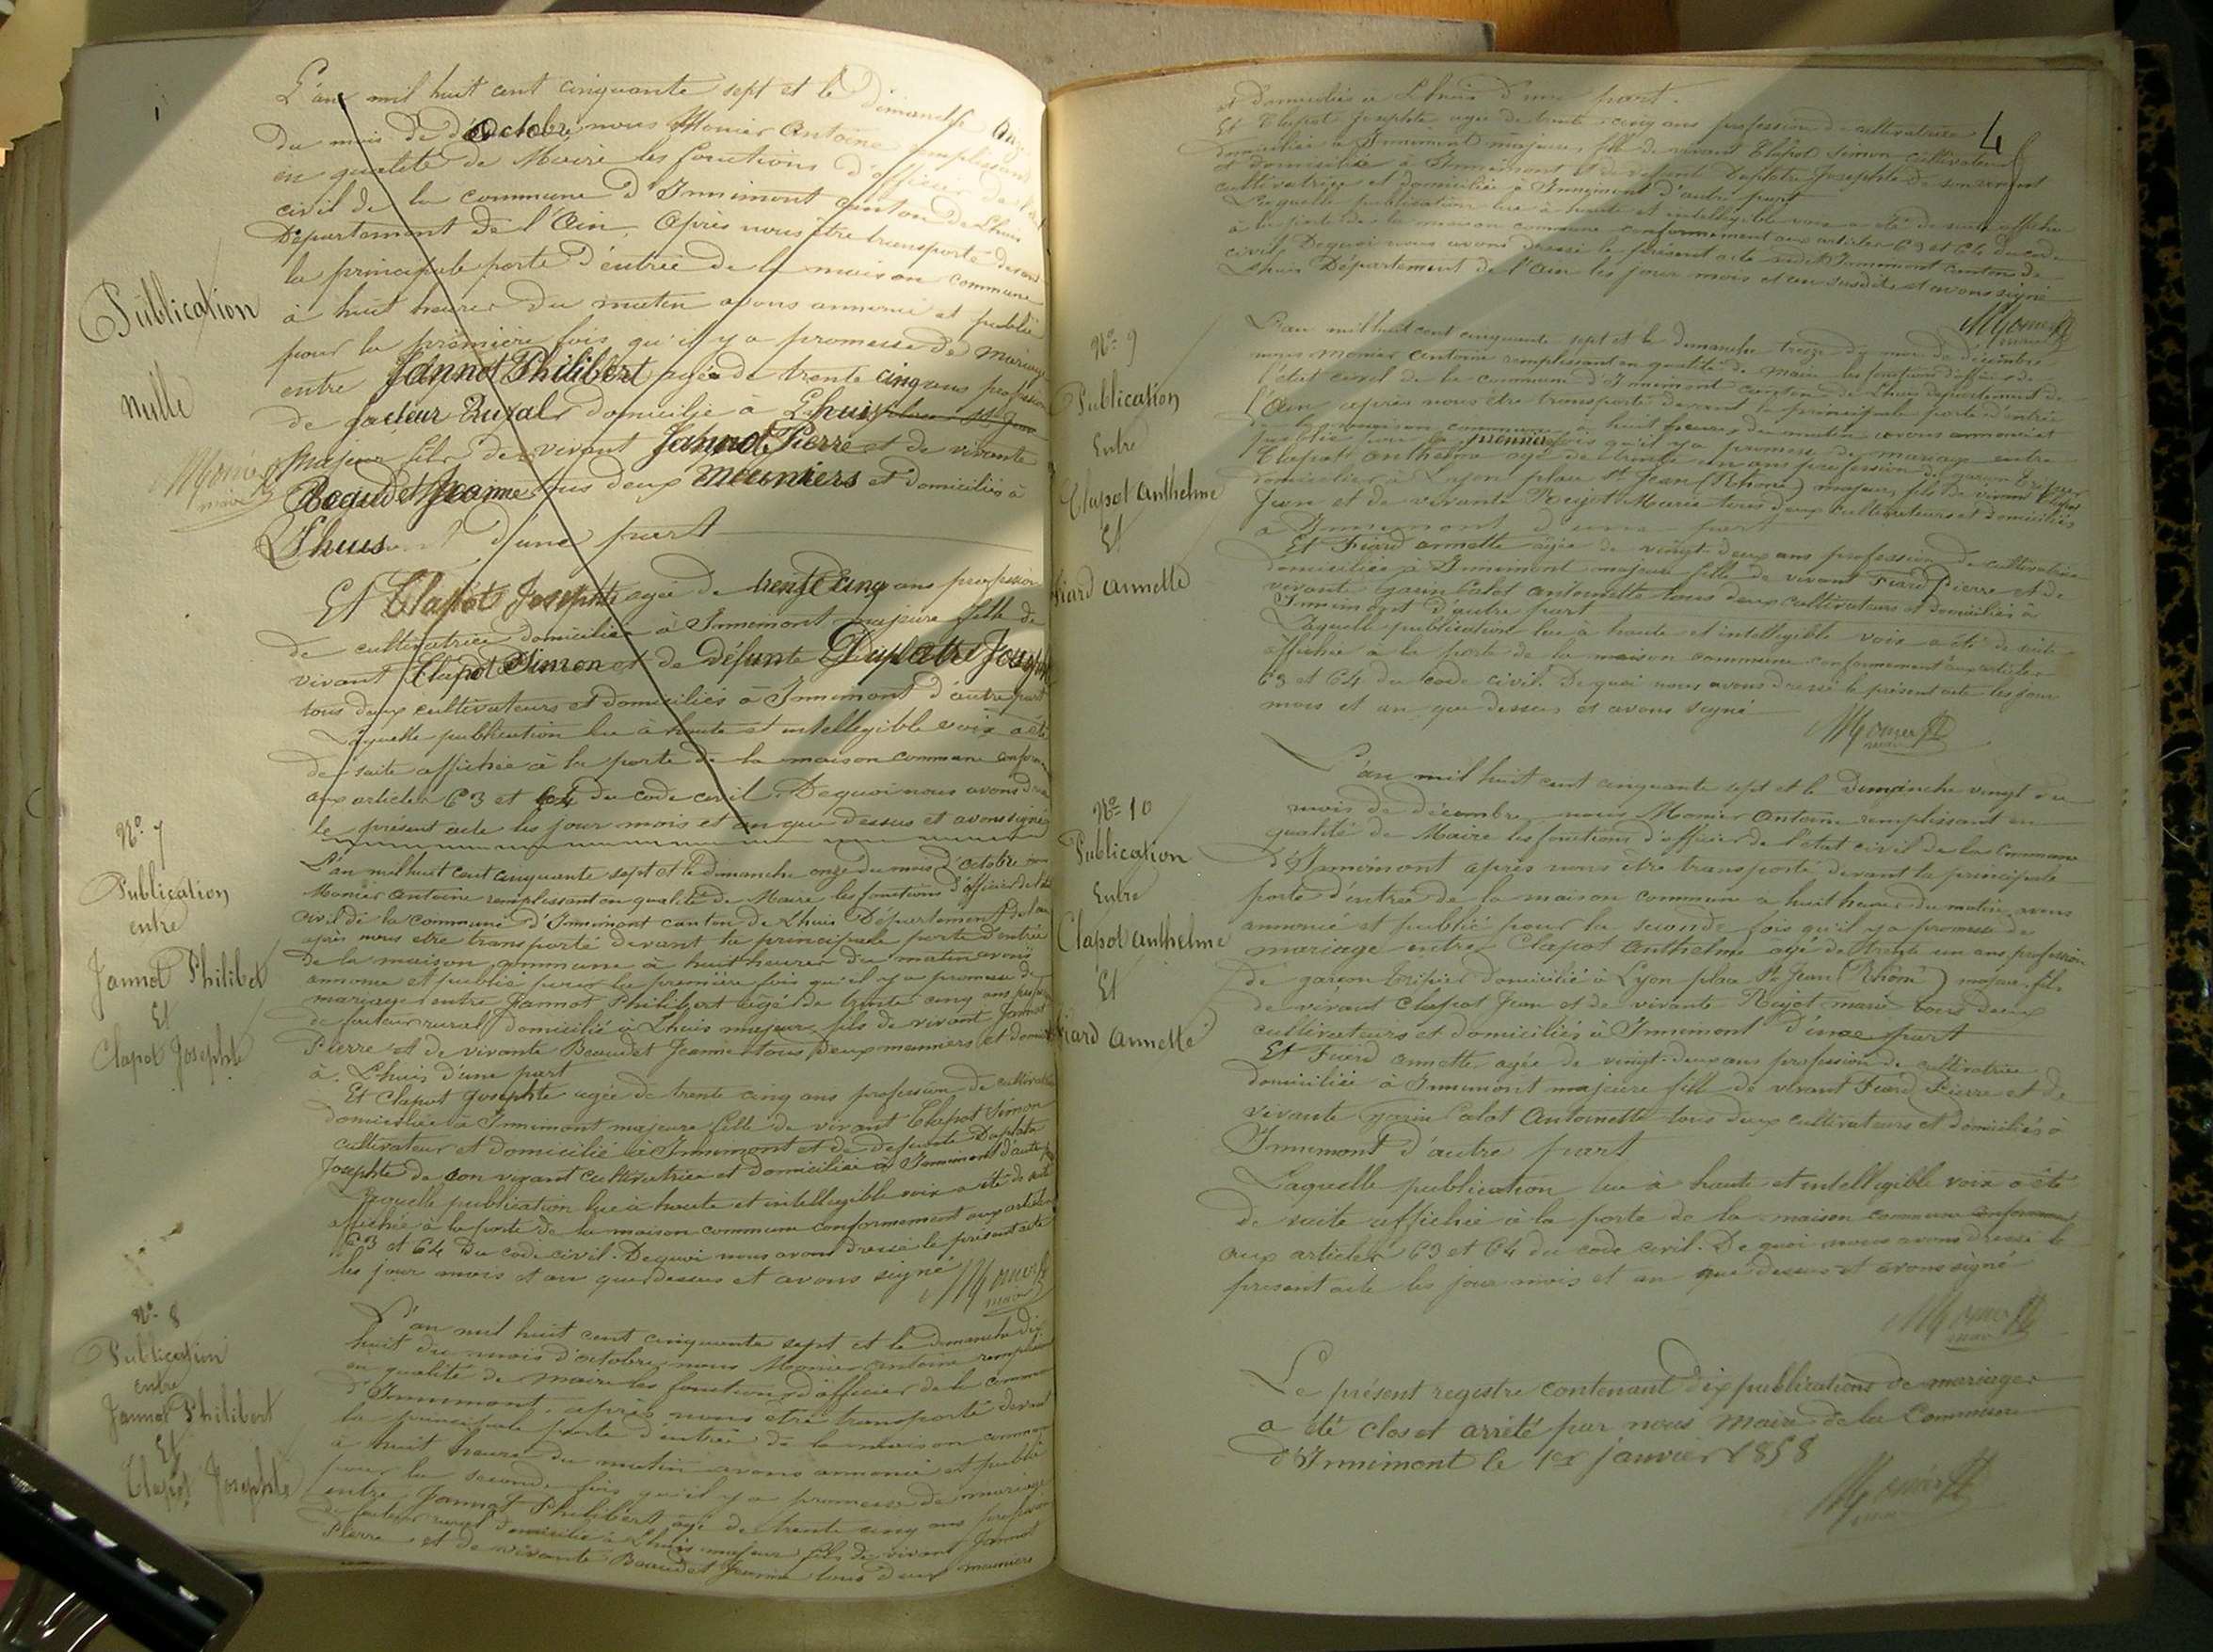 Publication
Nulle
Monier
maire
L'an mil huit cent cinquante sept et le dimanche onze
du mois de octobre nous Monier Antoine remplissant
en qualité de Maire les fonctions d'officier de l'état
civil de la commune d'Innimont canton de Lhuis
Département de l'Ain, Après nous être transporté devant
la principale porte d'entrée de la maison commune
à huit heures du matin avons annoncé et publié
pour la première fois qu'il y a promesse de mariage
entre Jannot Philibert agée de trente cinq ans profession
de facteur Rural domicilié à Lhuis place St Jean
Majeur fils de vivant Jannot Pierre et de vivante
Beaudet Jeanne tous deux meuniers et domiciliés à
Lhuis d'une part
Et Clapot Josephte agée de trente cinq ans profession
de cultivatrice domiciliée à Innimont majeure fille de
vivant Clapot Simon et de défunte Duplatre Josephte
tous deux cultivateurs et domiciliés à Innimont d'autre part
Laquelle publication lue à haute et intellegible voix a été
de suite affichée à la porte de la maison commune conforme
aux articles 63 et 64 du code civil. De quoi nous avons dressé
le présent acte les jour mois et an que dessus et avons signé
No 7
Publication
entre
Jannot Philibert
Et
Clapot Josephte
L'an mil huit cent cinquante sept et le dimanche onze du mois d'octobre nous
Monier Antoine remplissant en qualité de Maire les fonctions d'officier de l'état
civil de la commune d'Innimont canton de Lhuis Département de l'ain
après nous etre transporté devant la principale porte d'entrée
de la maison commune à huit heures du matin avons
annoncé et publié pour la première fois qu'il y a promesse de
mariage entre Jannot Philibert agé de trente cinq ans profession
de facteur rural domicilié à Lhuis majeur fils de vivant Jannot
Pierre et de vivante Beaudet Jeanne tous deux meuniers et domiciliés
à Lhuis d'une part
Et Clapot Josephte agée de trente cinq ans profession de cultivatrice
domiciliée à Innimont majeure fille de vivant Clapot Simon
cultivateur et domicilié à Innimont et de defunte Duplatre
Josephte de son vivant cultivatrice et domiciliée à Innimont d'autre part
Laquelle publication lue à haute et intellegible voix a été de suite
affichée à la porte de la maison commune conformement aux articles
63 et 64 du code civil. De quoi nous avons dressé le présent acte
les jour mois et an que dessus et avons signé
Monier
maire
No 8
Publication
entre
Jannot Philibert
Et
Clapot Josephte
L'an mil huit cent cinquante sept et le dimanche dix
huit du mois d'octobre nous Monier Antoine remplissant
en qualité de maire les fonctions d'officier de la commune
d'Innimont, après nous être transporté devant
la principale porte d'entrée de la maison commune
à huit heures du matin avons annoncé et publié
pour la seconde fois qu'il y a promesse de mariage
entre Jannot Philibert agé de trente cinq ans profession
de facteur rural domicilié à Lhuis majeur fils de vivant Jannot
Pierre et de vivante Beaudet Jeanne tous deux meuniers
4
et domiciliés à Lhuis d'une part.
Et Clapot Josephte agée de trente cinq ans profession de cultivatrice
domiciliée à Innimont majeure, fille de vivant Clapot Simon cultivateur
et domicilié à Innimont et de defunte Duplatre Josephte de son vivant
cultivatrice et domiciliée à Innimont d'autre part
Laquelle publication lue à haute et intelligible voix a été de suite affichée
à la porte de la maison commune conformement aux articles 63 et 64 du code
civil. De quoi nous avons dressé le présent acte audit Innimont canton de
Lhuis Département de l'Ain les jour mois et an susdits et avons signé
Monier
maire
No 9
Publication
Entre
Clapot Anthelme
Et
Fiard Annette
L'an mil huit cent cinquante sept et le dimanche treize du mois de décembre
nous Monier Antoine remplissant en qualité de Maire les fonctions d'officier de
l'état civil de la commune d'Innimont canton de Lhuis département de
l'Ain après nous être transporté devant la principale porte d'entrée
de la maison commune à huit heures du matin avons annoncé et
publié pour la première fois qu'il y a promesse de mariage entre
Clapot Anthelme agé de trente un ans profession de garçon tripier
domicilié à Lyon place St Jean (Rhône) majeur fils de vivant Clapot
Jean et de vivante Rujot Marie tous deux cultivateurs et domiciliés
à Innimont d'une part
Et Fiard Annette agée de vingt-deux ans profession de cultivatrice
domiciliée à Innimont majeure fille de vivant Fiard Pierre et de
vivante Calot Antoinette tous deux cultivateurs et domiciliés à
Innimont d'autre part
Laquelle publication lue à haute et intelligible voix a été de suite
affichée à la porte de la maison commune conformement aux articles
63 et 64 du code civil. De quoi nous avons dressé le présent acte les jour
mois et an que dessus et avons signé
Monier
maire
No 10
Publication
Entre
Clapot Anthelme
Et
Fiard Annette
L'an mil huit cent cinquante sept et le Dimanche vingt du
mois de décembre nous Monier Antoine remplissant en
qualité de Maire les fonctions d'officier de l'état civil de la Commune
d'Innimont après nous être transporté devant la principale
porte d'entrée de la maison commune à huit heures du matin avons
annoncé et publié pour la seconde fois qu'il y a promesse de
mariage entre Clapot Anthelme agé de trente un ans profession
de garçon tripier domicilié à Lyon place St Jean (Rhône) majeur fils
de vivant Clapot Jean et de vivante Rujot marie tous deux
cultivateurs et domiciliés à Innimont d'une part
Et Fiard annette agée de vingt-deux ans profession de cultivatrice
domiciliée à Innimont majeure fille de vivant Fiard Pierre et de
vivante Calot Antoinette tous deux cultivateurs et domiciliés à
Innimont d'autre part
Laquelle publication lue à haute et intelligible voix a été
de suite affichée à la porte de la maison commune conformement
aux articles 63 et 64 du code civil. De quoi nous avons dressé le
présent acte les jour mois et an que dessus et avons signé
Monier
maire
Le présent registre contenant dix publications de mariages
a été clos et arrêté par nous Maire de la Commune
d'Innimont le 1er janvier 1858
Monier
maire